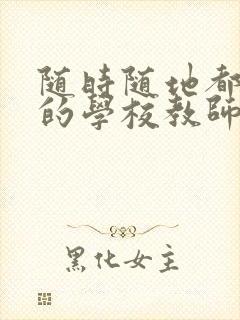 随時随地都
的學校教師
黑化女主